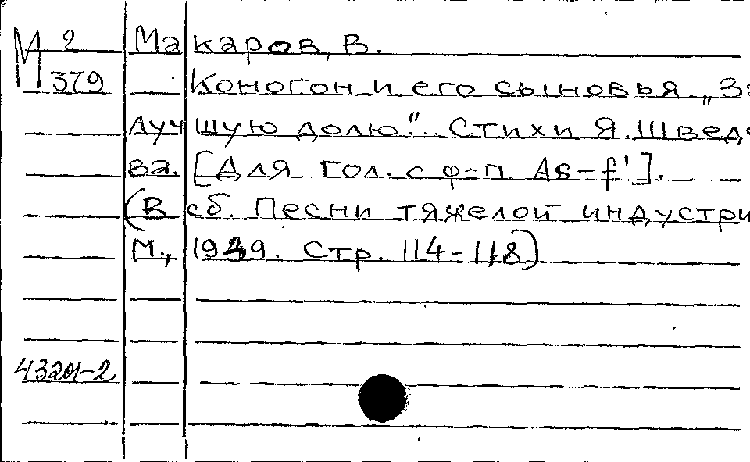 М 2 Макаров, В.
379 Коногон и его сыновья „За
лучшую долю". Стихи Я. Шведо
ва. [Для гол. с ф-п. As-f'].
(В сб. Песни тяжелой индустри
М., 1939. Стр. 114-118)
43201-2